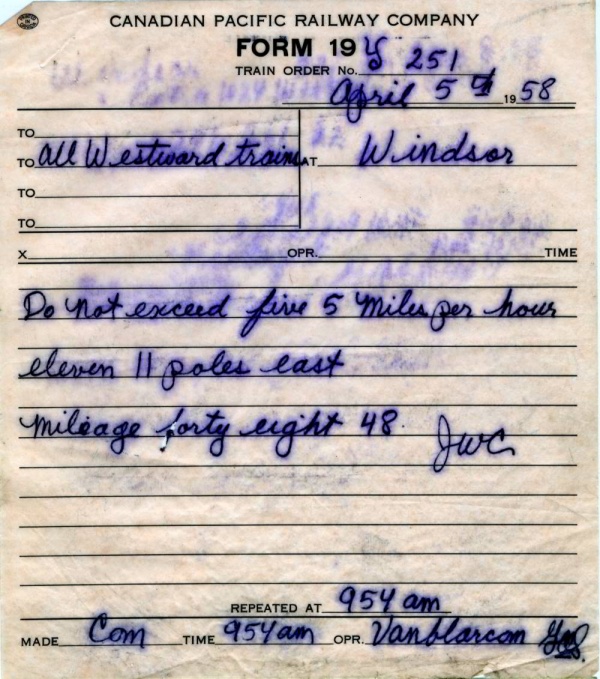 CANADIAN PACIFIC RAILWAY COMPANY
FORM 19 Y
TRAIN ORDER No. 251
April 5th 1958
TO
TO All Westward trains AT Windsor
TO
TO
X OPR. TIME
Do not exceed five 5 Miles per hour
eleven 11 poles east
Mileage forty eight 48
JWC
REPEATED AT 954 am
MADE Com TIME 954 am OPR. Vanblarcom